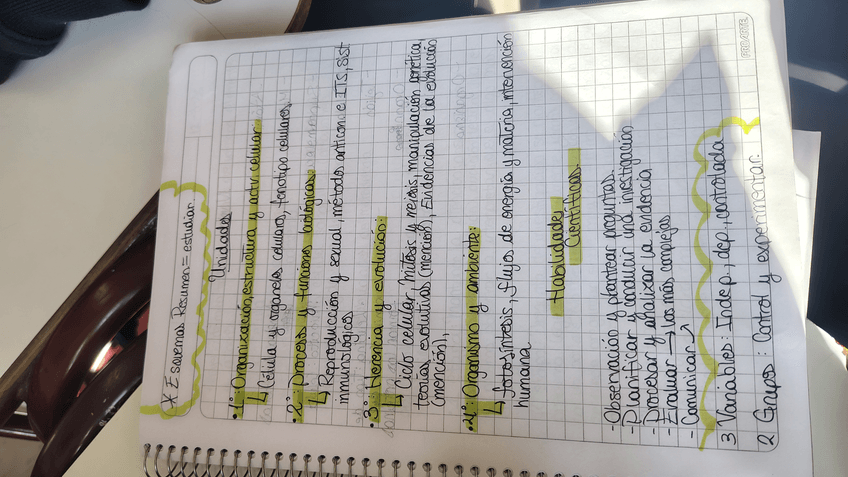 * Esquemas Resumen = estudiar.
Unidades
• 1°: Organización, estructura y activ. celular:
↳ Célula y organelos celulares, fenotipo celulares.
• 2°: Procesos y funciones biológicas.
↳ Reproducción y sexual, métodos anticon e ITS, sist
inmunológicos
• 3°: Herencia y evolución:
↳ Ciclo celular, mitosis y meiosis, manipulación genética,
teorias evolutivas (mención), Evidencias de la evolución
(mención),
• 4°: Organismo y ambiente:
↳ fotosíntesis, flujos de energía y materia, intervención
humana
Habilidades
Científicas.
- Observación y plantear preguntas.
- Planificar y conducir una investigación
- Procesar y analizar la evidencia
- Evaluar → las más complejas
- Comunicar
3 Variables: Indep, dep, controlada
2 Grupos: Control y experimentar.
PROARTE